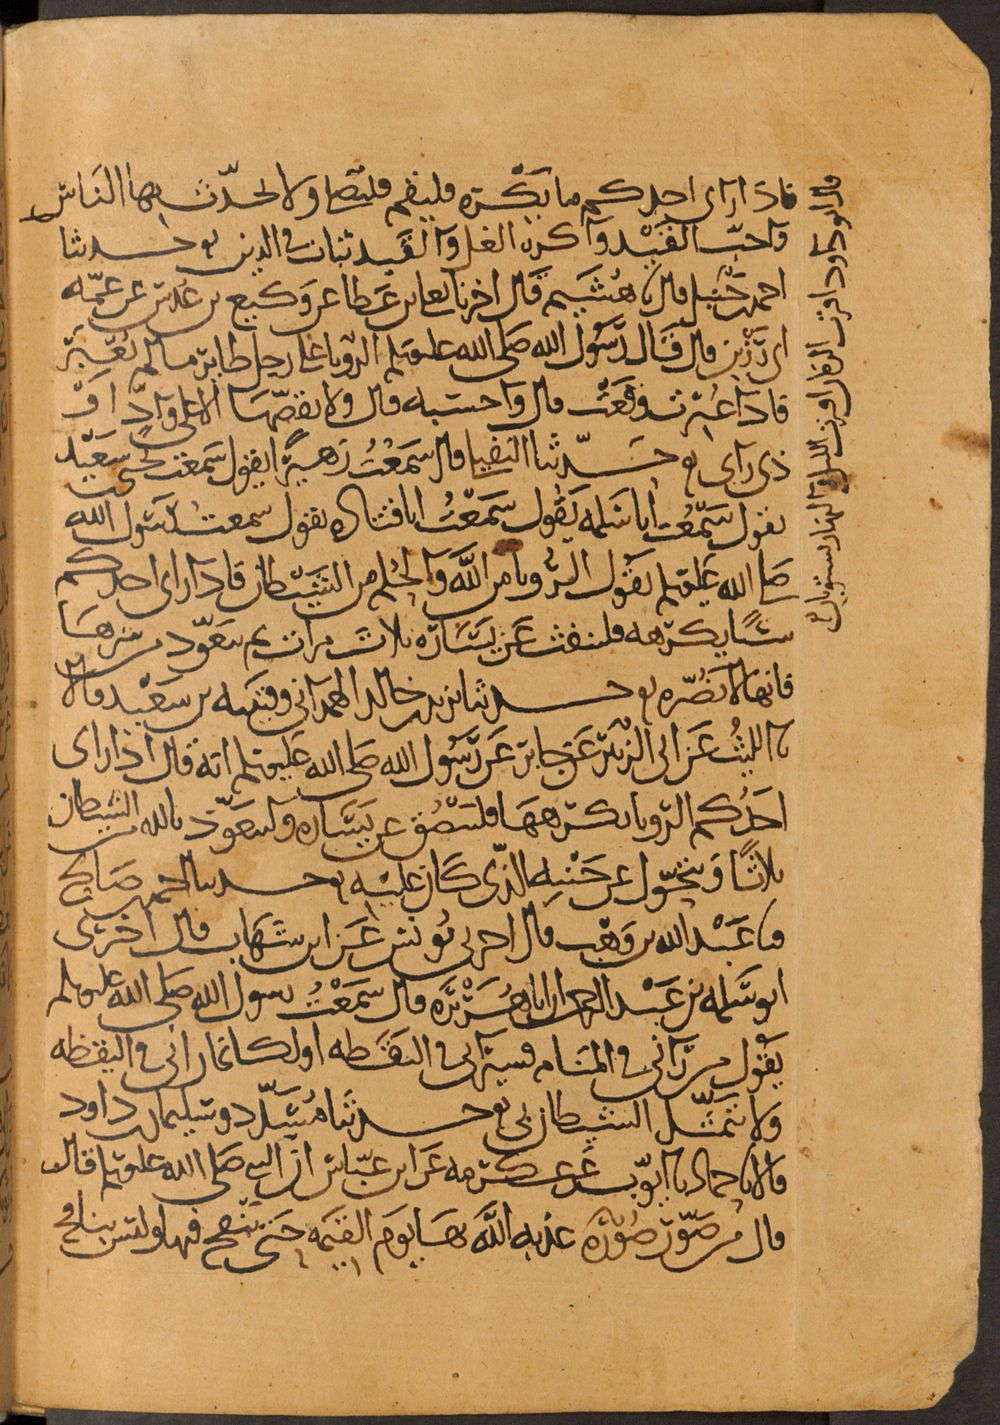 فاذا راى احدكم ما يكره فليقم فليصل ولا يحدث بها الناس
واحب القيد واكره الغل والقيد ثبات في الدين حدثنا
احمد بن حنبل قال نا هشيم قال اخرنا يعلى بن عطا عن وكيع بن عدس عن عمه
ابي رزين قال قال رسول الله صلى الله عليه وسلم الرويا على رجل طاير ما لم تعبر
فاذا عبرت وقعت قال واحسبه قال ولا يقصها الا على واد او
ذي راى حدثنا النفيلي قال سمعت زهيرا يقول سمعت يحيى بن سعيد
يقول سمعت ابا سلمه يقول سمعت ابا قتاده يقول سمعت رسول الله
صلى الله عليه وسلم يقول الرويا من الله والحلم من الشيطان فاذا راى احدكم
شيا يكرهه فلينفث عن يساره ثلاث مرات ثم يتعوذ من شرها
فانها لا تضره حدثنا يزيد بن خالد الهمداني وقتيبه بن سعيد قالا
نا الليث عن ابي الزبير عن جابر عن رسول الله صلى الله عليه وسلم انه قال اذا راى
احدكم الرويا يكرهها فليبصق عن يساره وليتعوذ بالله من الشيطان
ثلاثا ويتحول عن جنبه الذي كان عليه حدثنا احمد بن صالح
نا عبد الله بن وهب قال اخبرني يونس عن ابن شهاب قال اخبرني
ابو سلمه بن عبد الرحمن ان ابا هريره قال سمعت رسول الله صلى الله عليه وسلم
يقول من راني في المنام فسيراني في اليقظه او لكانما راني في اليقظه
ولا يتمثل الشيطان بي حدثنا مسدد وسليمان بن داود
قالا نا حماد نا ايوب عن عكرمه عن ابن عباس ان النبي صلى الله عليه وسلم قال
قال من صور صوره عذبه الله بها يوم القيمه حتى ينفخ فيها وليس بنافخ
قال ابو داود اذا اقترب الزمان اقترب الليل والنهار يستويان